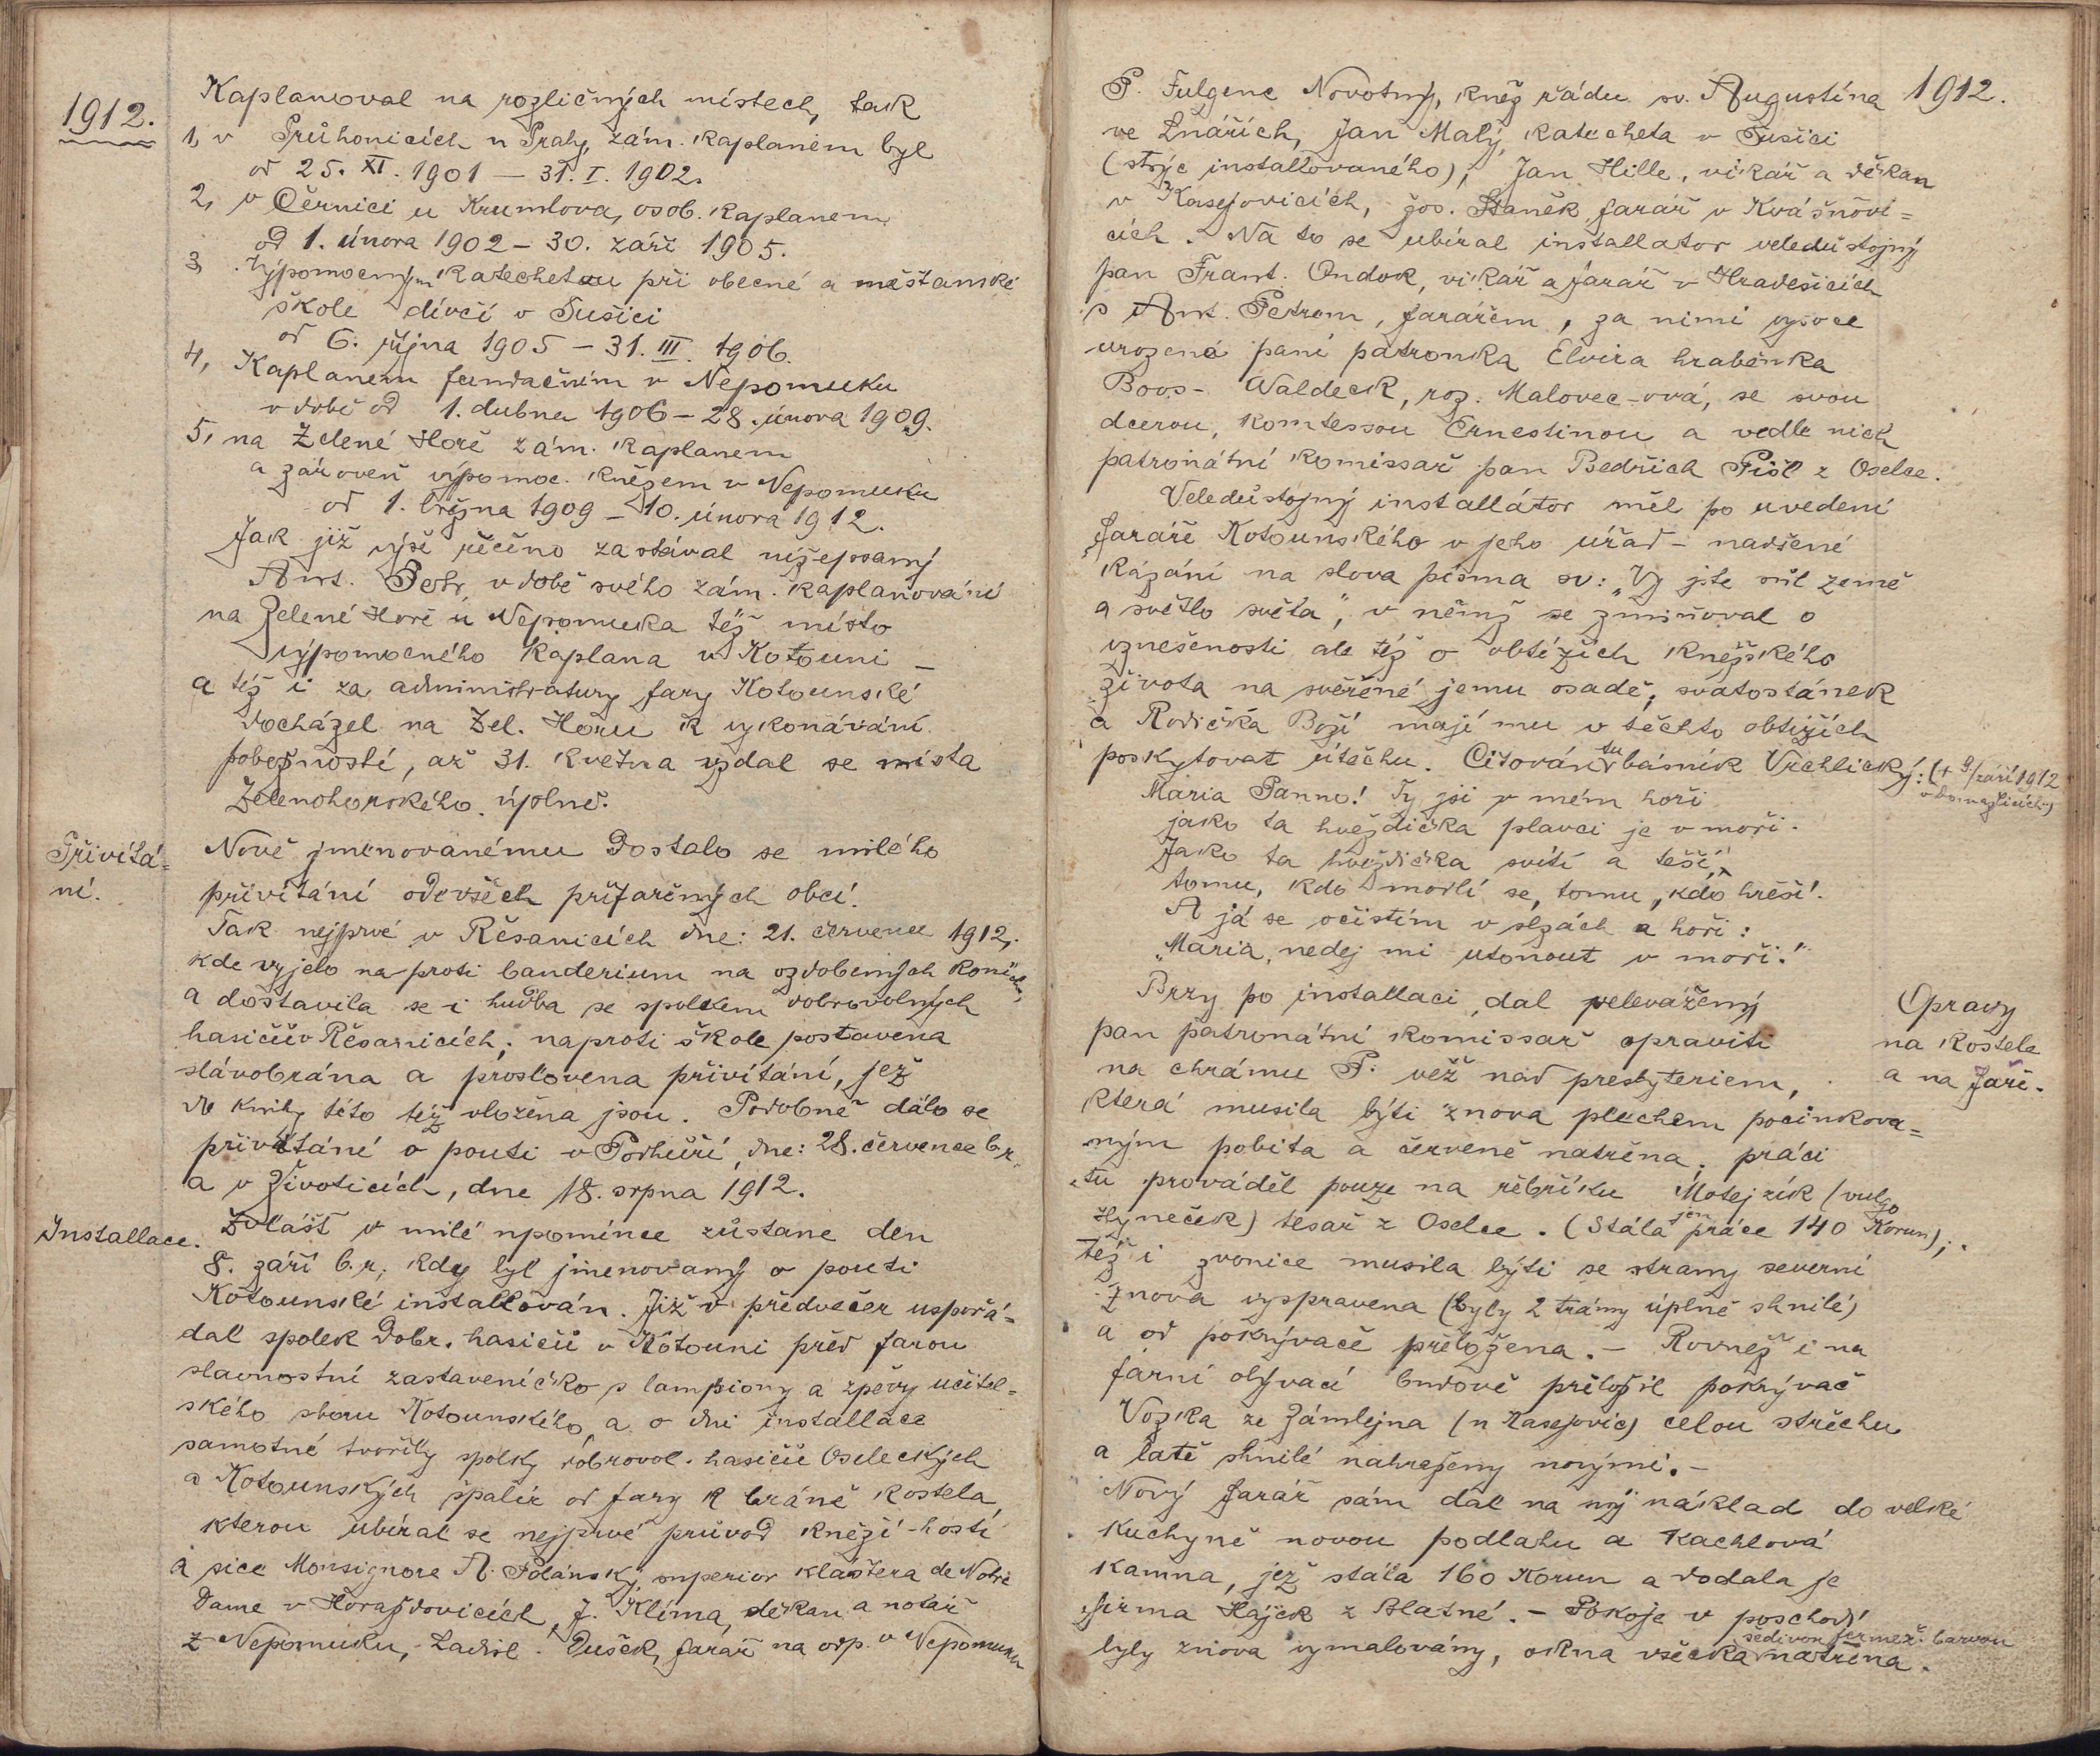 1912.
Kaplanoval na rozličných místech, tak
1, v Průhonicích u Prahy, zám. kaplanem byl
od 25. XI. 1901 — 31. I. 1902.
2, v Černici u Krumlova, osob. kaplanem
od 1. února 1902 – 30. září 1905.
3, Výpomocným katechetou při obecné a měšťanské
škole dívčí v Sušici
od 6. října 1905 – 31. III. 1906.
4, Kaplanem fundačním v Nepomuku
v době od 1. dubna 1906 – 28. února 1909.
5, na Zelené Hoře zám. kaplanem
a zároveň výpomoc. knězem v Nepomuku
od 1. března 1909 – 10. února 1912.
Jak již výše řečeno zastával nížepsaný
Ant. Petr, v době svého zám. kaplanování
na Zelené Hoře u Nepomuka též místo
výpomocného kaplana v Kotouni –
a též i za administratury fary Kotounské
docházel na Zel. Horu k vykonávání
pobožností, až 31. května vzdal se místa
Zelenohorského úplně.
Přivítá=
ní.
Nově jmenovanému dostalo se milého
přivítání ode všech přifařených obcí.
Tak nejprvé v Řesanicích dne: 21. července 1912,
kde vyjelo naproti banderium na ozdobených koních,
a dostavila se i hudba se spolkem dobrovolných
hasičův Řesanicích; naproti škole postavena
slávobrána a proslovena přivítání, jež
do knihy této též vložena jsou. Podobně dálo se
přivítání o pouti v Podhůří, dne: 28. července b.r.
a v Životicích, dne 18. srpna 1912.
Installace.
Zvlášť v milé upomínce zůstane den
8. září b.r; kdy byl jmenovaný o pouti
Kotounské installován. Již v předvečer uspořá=
dal spolek dobr. hasičů v Kotouni před farou
slavnostní zastaveníčko s lampiony a zpěvy učitel=
ského sboru Kotounského, a o dni installace
samotné tvořily spolky dobrovol. hasičů Oseleckých
a Kotounských špalír od fary k bráně kostela,
kterou ubíral se nejprvé průvod kněží-hostí
a sice Monsignore A. Polánský, superior kláštera de Notre
Dame v Horažďovicích, J. Klíma, děkan a notář
z Nepomuku, Ladisl. Dušek, farář na odp. v Nepomuku
1912.
P. Fulgenc Novotný, kněz řádu sv. Augustína
ve Lnářích, Jan Malý, katecheta v Sušici
(strýc installovaného), Jan Hille, vikář a děkan
v Kasejovicích, Jos. Staněk farář v Kvášňovi=
cích. Na to se ubíral installator veledůstojný
pan Frant. Ondok, vikář a farář v Hradešicích
s Ant. Petrem, farářem, za nimi vysoce
urozená paní patronka Elvira hraběnka
Boos-Waldeck, roz. Malovec-ová, se svou
dcerou, komtessou Ernestinou a vedle nich
patronátní komissař pan Bedřich Pišl z Oselce.
Veledůstojný installátor měl po uvedení
faráře Kotounského v jeho úřad – nadšené
kázání na slova písma sv: „Vy jste sůl země
a světlo světa", v němž se zmiňoval o
vznešenosti ale též o obtížích kněžského
života na svěřené jemu osadě; svatostánek
a Rodička Boží mají mu v těchto obtížích
poskytovat útěchu. Citován tu básník Vrchlický: († 9/září 1912
v Domažlicích)
Maria Panno! Ty jsi v mém hoři
jako ta hvězdička plavci je v moři.
Jako ta hvězdička svítí a těší,
tomu, kdo modlí se, tomu, kdo hřeší!
A já se očistím v slzách a hoři:
„Maria, nedej mi utonout v moři!"
Opravy
na kostele
a na faře.
Brzy po installaci dal velevážený
pan patronátní komissař opraviti
na chrámu P. věž nad presbyteriem,
která musila býti znova plechem pocinkova=
ným pobita a červeně natřena; práci
tu prováděl pouze na řebříku Motejzík (vulgo
Hyneček) tesař z Oselce. (Stála jen práce 140 Korun);
též i zvonice musila býti se strany severní
znova vyspravena (byly 2 trámy úplně shnilé)
a od pokrývače přeložena. – Rovněž i na
farní obývací budově přeložil pokrývač
Vozka ze Zámlejna (u Kasejovic) celou střechu
a latě shnilé nahraženy novými. –
Nový farář sám dal na svůj náklad do velké
kuchyně novou podlahu a kachlová
kamna, jež stála 160 Korun a dodala je
firma Hájek z Blatné. – Pokoje v poschodí
byly znova vymalovány, okna všecka šedivou fermež. barvou natřena.